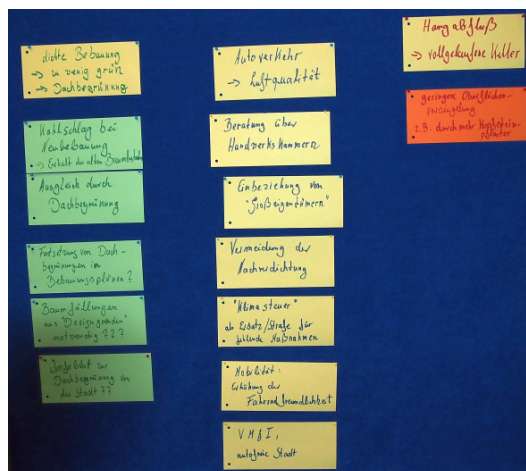 dichte Bebauung
→ zu wenig grün
→ Dachbegrünung
Kahlschlag bei
Neubebauung
→ Erhalt der alten
Ausgleich durch
Dachbegrünung
Festsetzung von Dach-
begrünungen in
Bebauungsplänen?
Baumfällungen
aus "Designgründen"
notwendig ???
Infoblatt zur
Dachbegrünung von
der Stadt??
Autoverkehr
→ Luftqualität
Beratung über
Handwerkskammern
Einbeziehung von
"Großeigentümern"
Vermeidung der
Nachverdichtung
"Klimasteuer"
als Ersatz/Strafe für
fehlende Maßnahmen
Mobilität:
Erhöhung der
Fahrradfreundlichkeit
autofreie Stadt
Hangabfluß
→ vollgelaufene Keller
geringere Oberflächen-
versiegelung
z.B. durch mehr